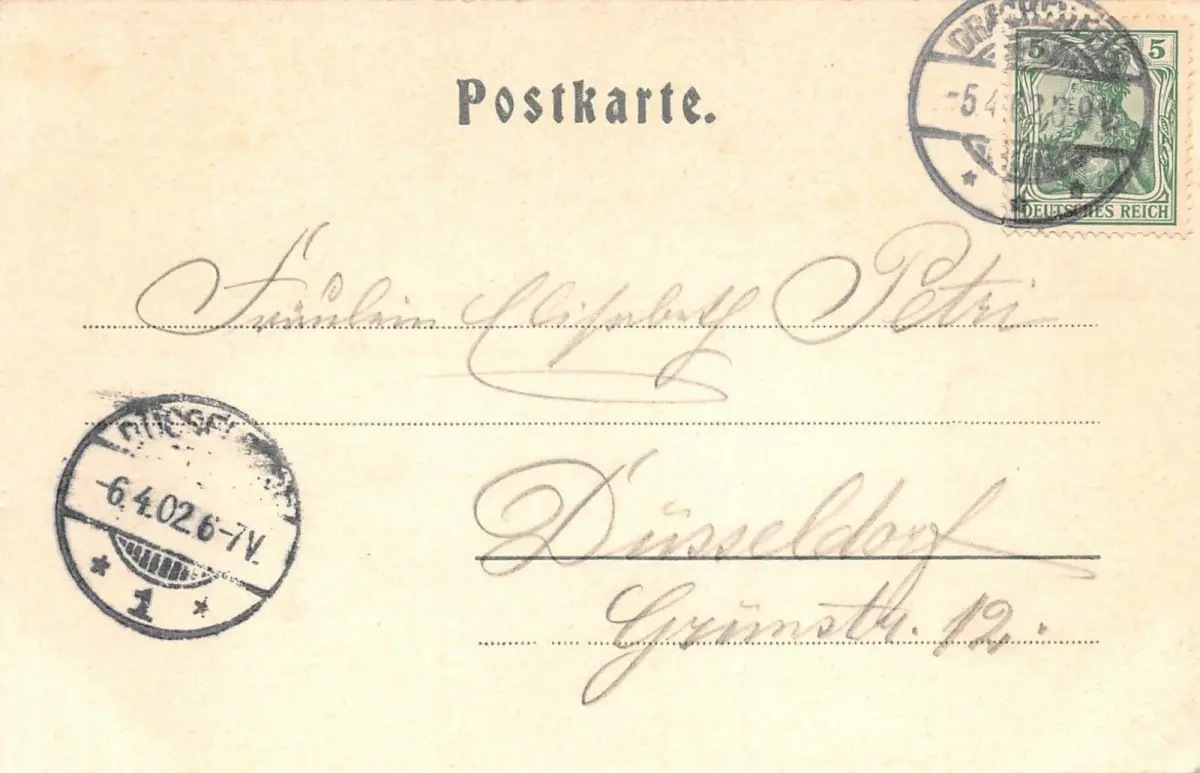 Postkarte.
5 5
-5.4.02.8-9V.
DEUTSCHES REICH
Fräulein Elisabeth Petri
DÜSSELDORF
-6.4.02.6-7V.
1
Düsseldorf
Grünstr. 12.